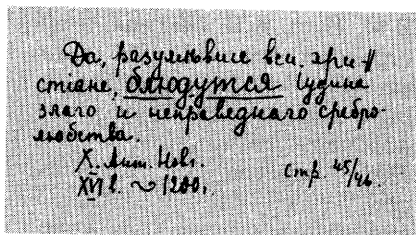 Да, разумѣвше вси. хри-//
стіане, блюдутся Іудина
злаго и неправеднаго сребро-
любства.
Х. Ант. Новг.
XVI в. ~ 1200г.
стр. 45/46.